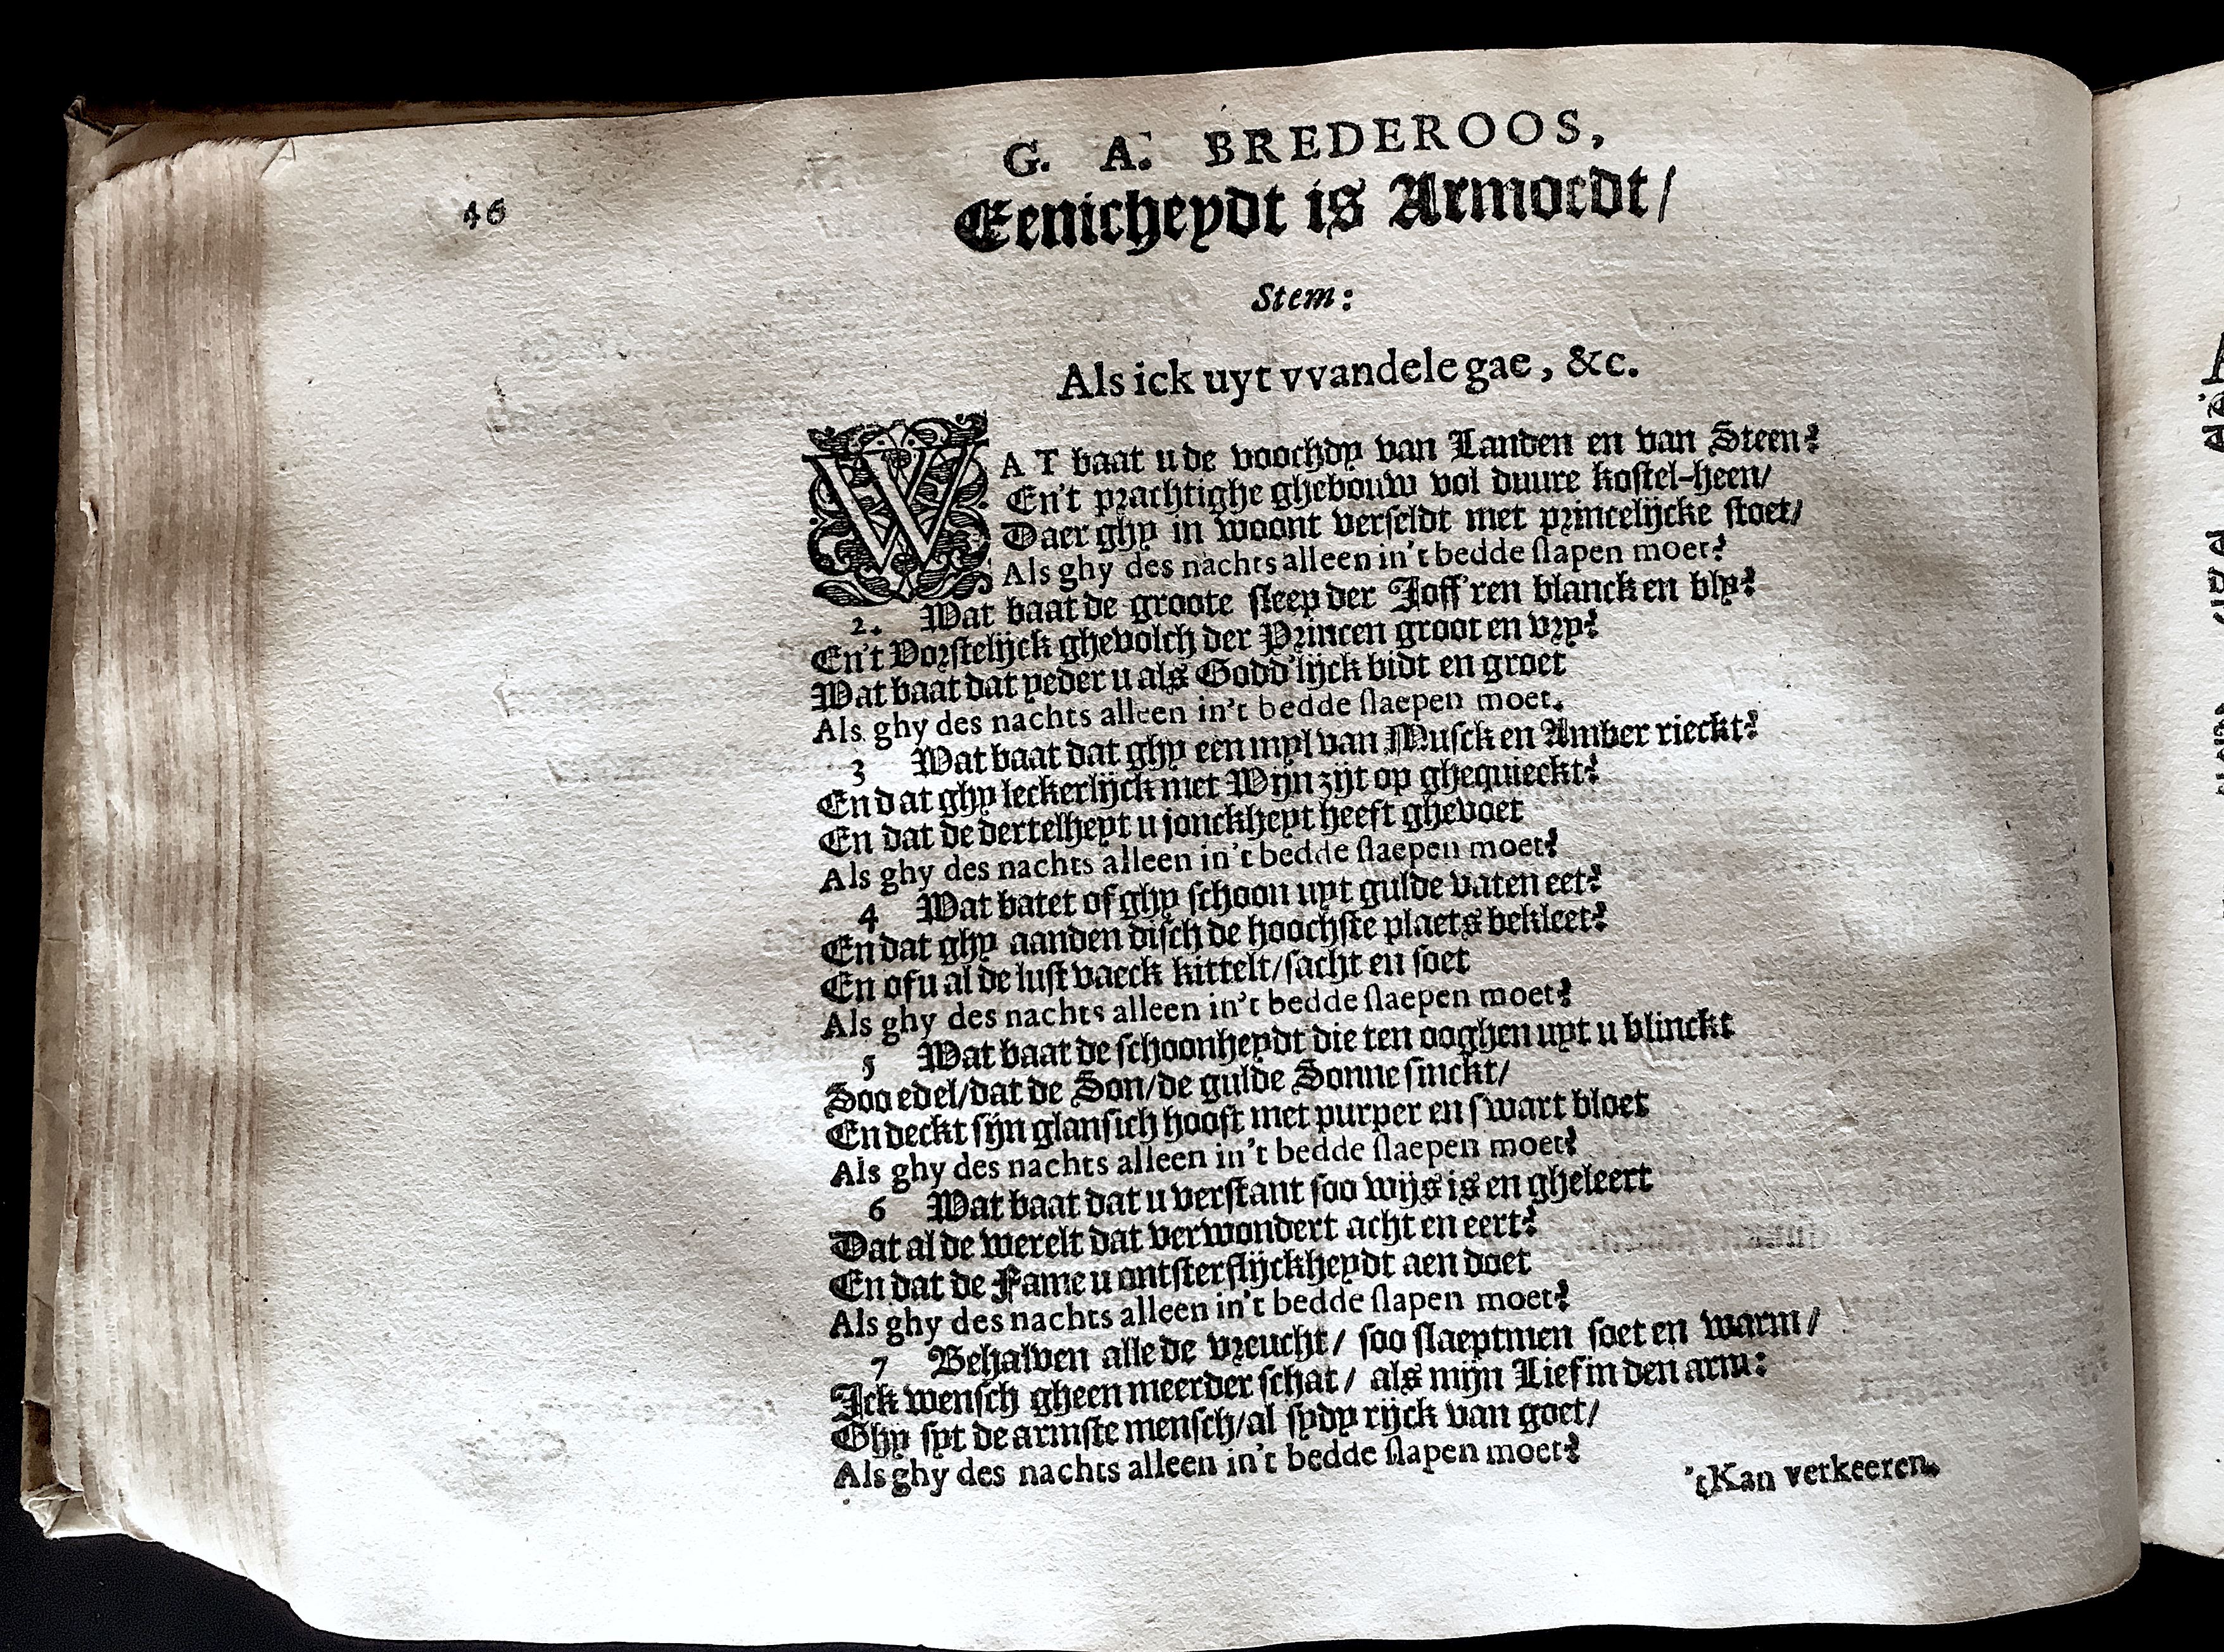 46
G. A. BREDEROOS,
Eenicheydt is Armoedt/
Stem:
Als ick uyt vvandele gae, &c.
WAT baat u de voochdy van Landen en van Steen?
En't prachtighe ghebouw vol duure kostel-heen/
Daer ghy in woont verseldt met princelijcke stoet/
Als ghy des nachts alleen in't bedde slapen moet?
2. Wat baat de groote sleep der Joff'ren blanck en bly?
En't Vorstelijck ghevolch der Princen groot en vry?
Wat baat dat yeder u als Godd'lijck bidt en groet
Als ghy des nachts alleen in't bedde slaepen moet.
3 Wat baat dat ghy een myl van Musck en Amber rieckt?
En dat ghy leckerlijck met Wijn zijt op ghequieckt?
En dat de dertelheyt u jonckheyt heeft ghevoet
Als ghy des nachts alleen in't bedde slaepen moet?
4 Wat batet of ghy schoon uyt gulde vaten eet?
En dat ghy aanden disch de hoochste plaets bekleet?
En of u al de lust vaeck kittelt/sacht en soet
Als ghy des nachts alleen in't bedde slaepen moet?
5 Wat baat de schoonheydt die ten ooghen uyt u blinckt
Soo edel/dat de Son/de gulde Sonne sinckt/
En deckt sijn glansich hooft met purper en swart bloet
Als ghy des nachts alleen in't bedde slaepen moet?
6 Wat baat dat u verstant soo wijs is en gheleert
Dat al de werelt dat verwondert acht en eert?
En dat de Fame u ontsterflijckheydt aen doet
Als ghy des nachts alleen in't bedde slapen moet?
7 Behalven alle de vreucht/ soo slaeptmen soet en warm/
Ick wensch gheen meerder schat/ als mijn Lief in den arm:
Ghy syt de armste mensch/al sydy rijck van goet/
Als ghy des nachts alleen in't bedde slapen moet?
't Kan verkeeren.